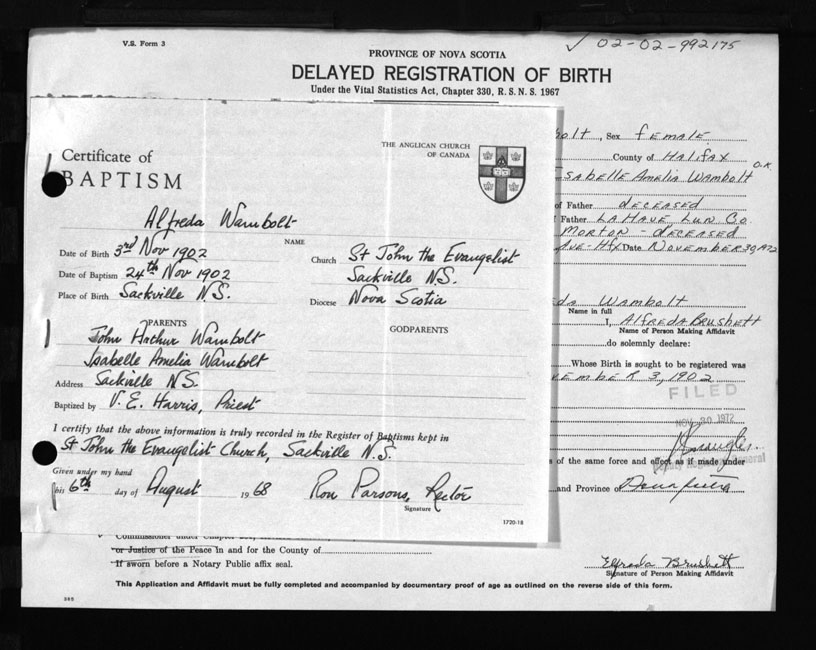 V.S. Form 3
✓ 02-02-992175
PROVINCE OF NOVA SCOTIA
DELAYED REGISTRATION OF BIRTH
Under the Vital Statistics Act, Chapter 330, R. S. N. S. 1967
THE ANGLICAN CHURCH
OF CANADA
Certificate of
BAPTISM
Alfreda Wambolt
NAME
Date of Birth 3rd Nov 1902
Church St John the Evangelist
Date of Baptism 24th Nov 1902
Sackville N.S.
Place of Birth Sackville N.S.
Diocese Nova Scotia
PARENTS
GODPARENTS
John Arthur Wambolt
Isabelle Amelia Wambolt
Address Sackville N.S.
Baptized by V. E. Harris, Priest
I certify that the above information is truly recorded in the Register of Baptisms kept in
St John the Evangelist Church, Sackville N.S.
Given under my hand
this 6th day of August 1968
Ron Parsons, Rector
Signature
1720-18
bolt, Sex female
County of Halifax
O.K.
sabelle Amelia Wambolt
of Father deceased
Father LaHave Lun Co.
Morton - deceased
Ave-Hfx Date November 30, 1972
da Wambolt
Name in full
I, Alfreda Brushett
Name of Person Making Affidavit
do solemnly declare:
Whose Birth is sought to be registered was
vember 3, 1902
FILED
NOV 30 1972
of the same force and effect as if made under
and Province of
or Justice of the Peace in and for the County of
If sworn before a Notary Public affix seal.
Alfreda Brushett
Signature of Person Making Affidavit
This Application and Affidavit must be fully completed and accompanied by documentary proof of age as outlined on the reverse side of this form.